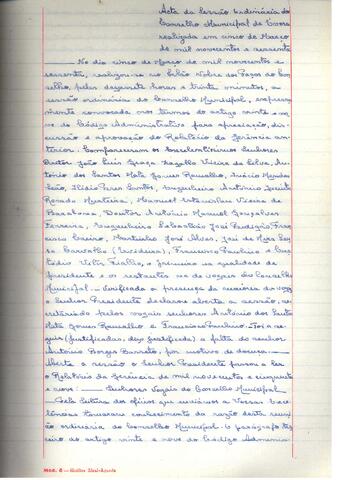 Acta da Sessão Ordinária do
Conselho Municipal de Évora
realizada em cinco de Março
de mil novecentos e sessenta
No dia cinco de Março de mil novecentos e
sessenta, realizou-se no Salão Nobre dos Paços do Con-
celho, pelas dezassete horas e trinta minutos, a
sessão ordinária do Conselho Municipal, expressa-
mente convocada nos termos do artigo vinte e no-
ve do Código Administrativo para apreciação, dis-
cussão e aprovação do Relatório da Gerência an-
terior. Compareceram os Excelentíssimos Senhores
Doutor João Luís Vieira da Silva, An-
tónio dos Santos Mata Gomes Ramalho, Inácio
João, Ilídio Peres Santos, Engenheiro António
Rosado Monteiro, Manuel Estanislau Vieira de
Barahona, Doutor António Manuel Gonçalves
Ferreira, Engenheiro Sebastião José Perdigão, Fran-
cisco Martinho José Alves, José de Mira
Carvalho Francisco Paulino e
o primeiro na qualidade de
presidente e os restantes na de vogais do Conselho
Municipal. Verificada a presença da maioria de vogais
o Senhor Presidente declarou aberta a sessão, se-
cretariado pelos vogais senhores António dos Santos
Mata Gomes Ramalho e Francisco Paulino. Foi a se-
guir justificada a falta do senhor
António Borges Barreto, por motivo de doença.
Aberta a sessão o Senhor Presidente passou a ler
o Relatório da Gerência de mil novecentos e cinquenta
e nove: Senhores Vogais do Conselho Municipal
Pela leitura dos ofícios que enviámos a Vossas Exce-
lências tomaram conhecimento da razão desta reuni-
ão ordinária do Conselho Municipal. O parágrafo ter-
ceiro do artigo vinte e nove do Código Adminis-
Mod. 6